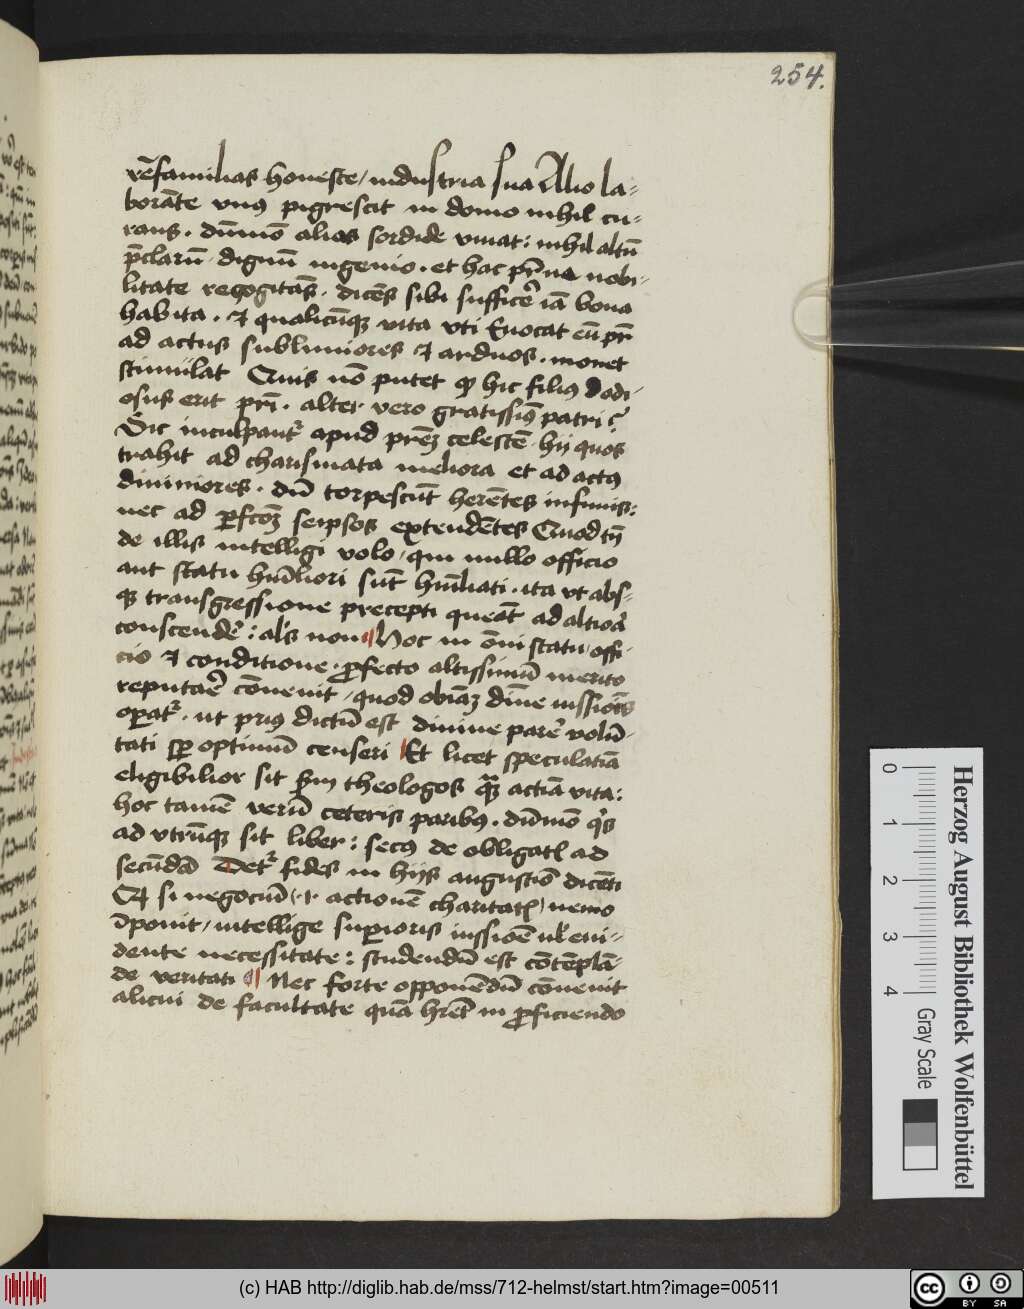 254.
rēfamilias honeste / industria sua Alio la-
borāte vnus pigrescit in domo nihil cu-
rans . dūmō alias sordide viuat : nihil altū
p̄clarū . dignū ingenio . et hac p̄ua nobi-
litate recogitās . dicēs sibi sufficē iā bona
habita . & qualicūq vita vti Euocat eū pr̄
ad actus sublimiores & arduos . monet
stimulat Quis nō putet q hic filius dodi-
osus erit pr̄i . alter vero gratissiꝰ patri ?
Sic inculpant apud prēꝫ celestē . hij quos
trahit ad charismata meliora et ad actus
diuiniores . dū torpescūt herētes infimis :
nec ad ꝑfcōꝫ seipsos extendētes Quod tn̄
de illis intelligi volo / qui nullo officio
aut statu hūiliori sūt hūiliati . ita vt abs-
qꝫ transgressione precepti queāt ad altiora
conscendē : als non Hoc in ōni statu / offi-
cio & conditione . ꝓfecto altissimū merito
reputaē cōuenit / quod obiaꝫ diuine iussiōis
operat . ut prius dictū est diuine parē volū-
tati sꝑ optimū censeri Et licet speculatiā
eligibilior sit ẜm theologos quā actiā vita :
hoc tamē verū ceteris paribus . dūmō qs
ad vtrūqꝫ sit liber : secus de obligatis ad
secūdā Detur fides in hijs augustiō dicēti
Et si negociū ( .i. actionē charitatis ) nemo
īponit / intellige suꝑioris iussiōe ul eui-
dente necessitate : studendū est cōtēplā-
de veritati Nec forte opponēdū cōuenit
alicui de facultate quā hret in ꝓficiendo
Herzog August Bibliothek Wolfenbüttel
0 1 2 3 4 Gray Scale
(c) HAB http://diglib.hab.de/mss/712-helmst/start.htm?image=00511
cc BY SA